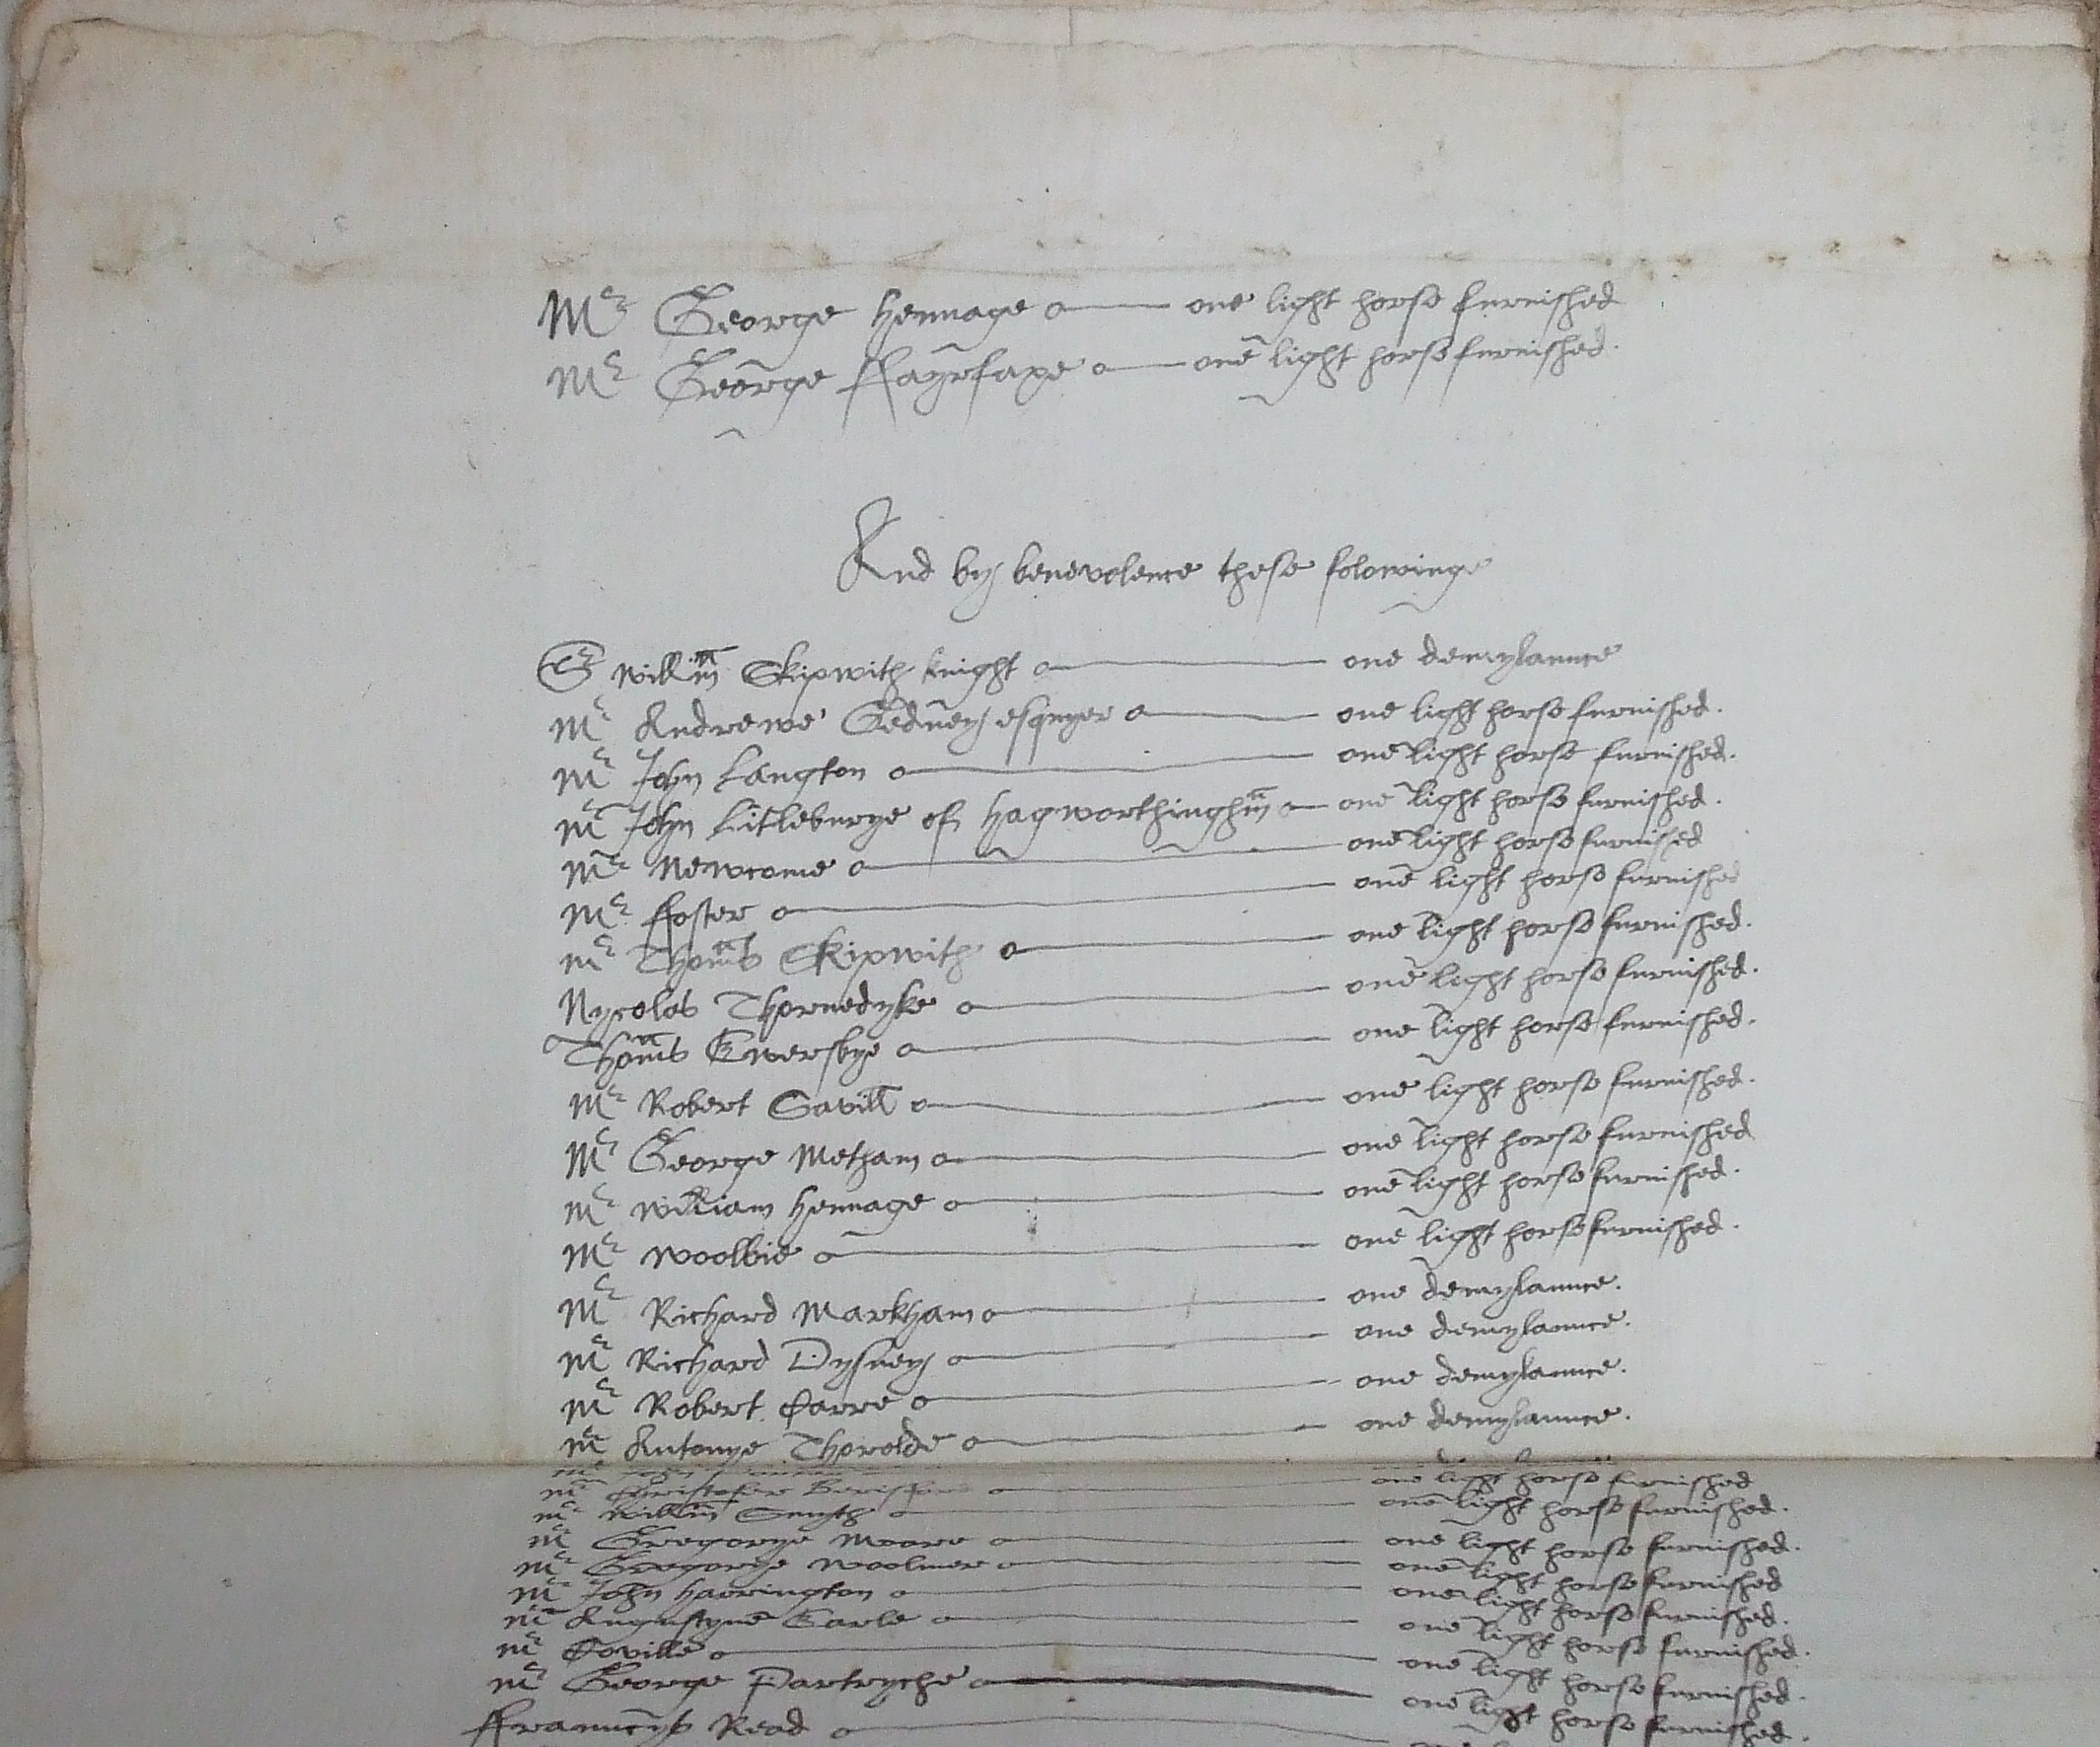 Mr George Hennage one light horse furnished
Mr George ffayrfaxe one light horse furnished.
And by benevolence these folowinge
Sr Willm Skipwith knight one demylaunce
Mr Andrewe Gedney esquyer one light horse furnished.
Mr John Langton one light horse furnished.
Mr John Litleburye of Hagworthinghm one light horse furnished.
Mr Newcome one light horse furnished
Mr ffoster one light horse furnished
Mr Thoms Skipwith one light horse furnished.
Nycolas Thornedyke one light horse furnished.
Thoms Ewersbye one light horse furnished.
Mr Robert Savill one light horse furnished.
Mr George Metham one light horse furnished
Mr William Hennage one light horse furnished.
Mr Woolbie one light horse furnished.
Mr Richard Markham one demylaunce.
Mr Richard Dysney one demylaunce.
Mr Robert Carre one demylaunce.
Mr Antonye Thorolde one demylaunce.
Mr Christofer one light horse furnished
Mr Willm Smyth one light horse furnished.
Mr Gregorye Moore one light horse furnished.
Mr Gregorye Woolmer one light horse furnished
Mr John Harrington one light horse furnished.
Mr Augustyne Earle one light horse furnished.
Mr Coville one light horse furnished.
Mr George Partryche one light horse furnished.
ffrauncys Read